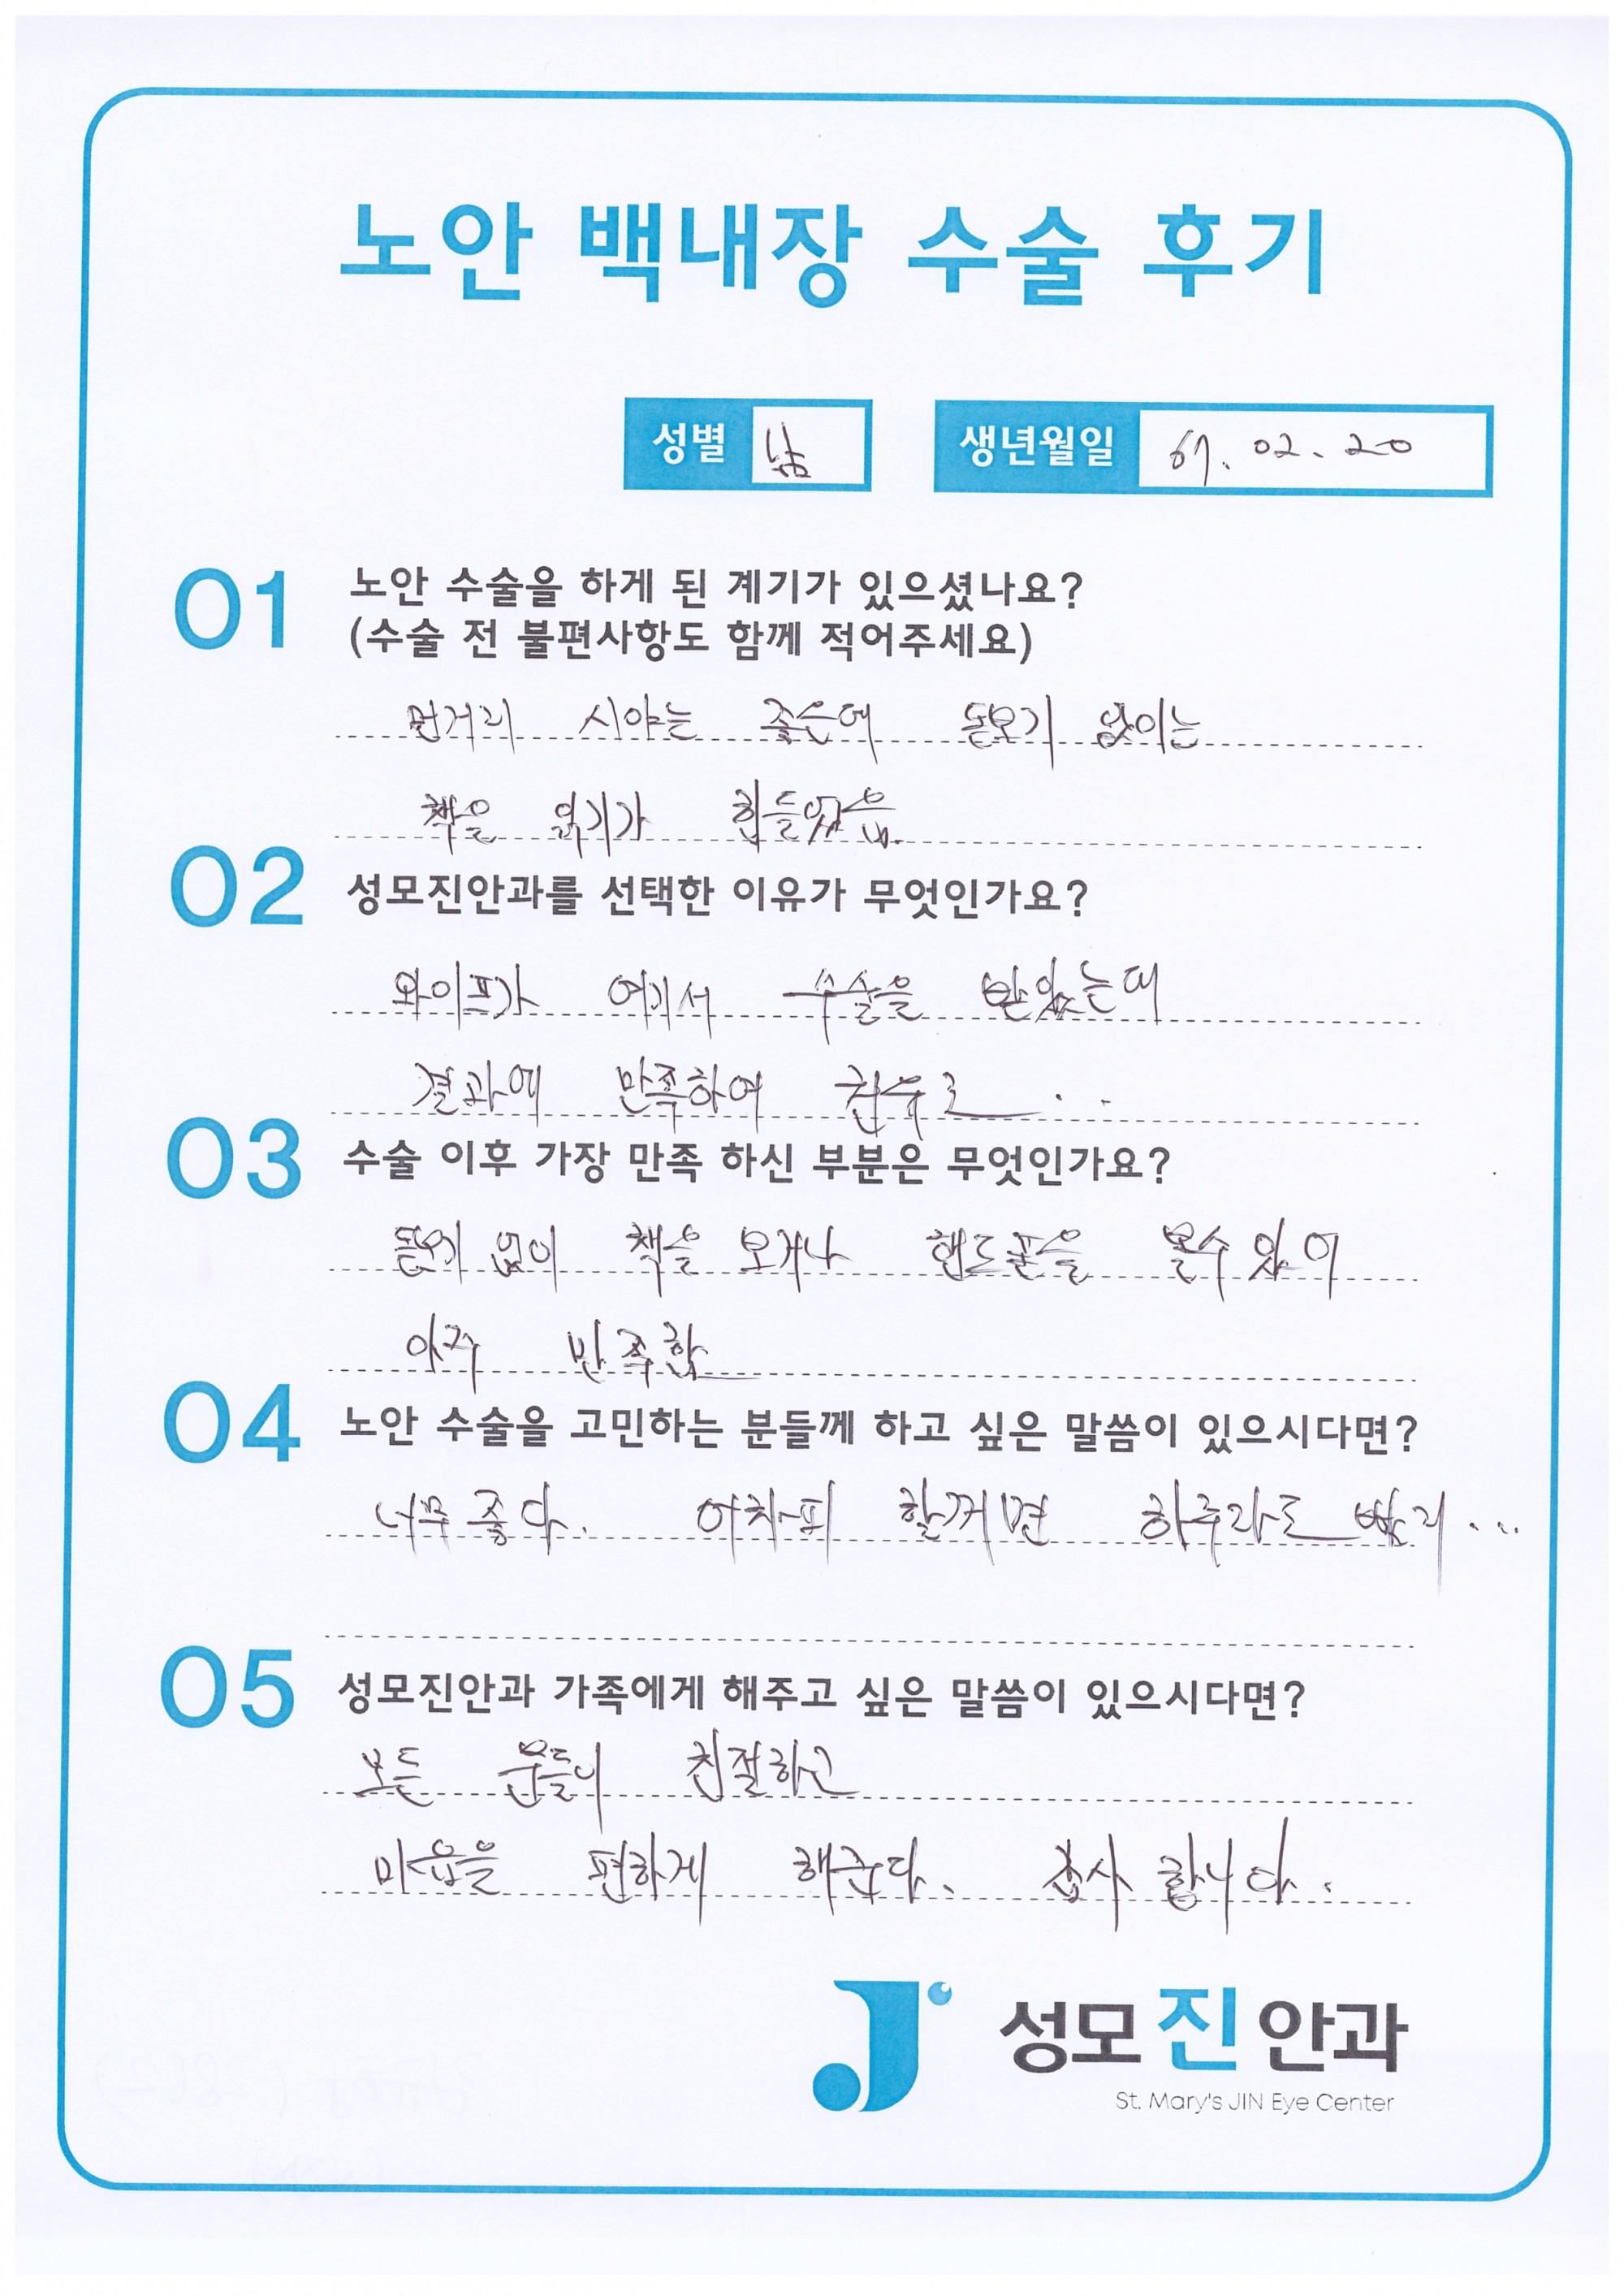 노안 백내장 수술 후기
성별 남 생년월일 67. 02. 20
01 노안 수술을 하게 된 계기가 있으셨나요?
(수술 전 불편사항도 함께 적어주세요)
먼거리 시야는 좋은데 돋보기 없이는
책을 읽기가 힘들었음.
02 성모진안과를 선택한 이유가 무엇인가요?
와이프가 여기서 수술을 받았는데
결과에 만족하여
03 수술 이후 가장 만족 하신 부분은 무엇인가요?
돋보기 없이 책을 보거나 핸드폰을 볼수 있어
아주 만족함
04 노안 수술을 고민하는 분들께 하고 싶은 말씀이 있으시다면?
너무 좋다. 어차피 할꺼면 하루라도 빨리...
05 성모진안과 가족에게 해주고 싶은 말씀이 있으시다면?
모든 분들이 친절하고
마음을 편하게 해준다. 감사 합니다.
성모진안과
St. Mary's JIN Eye Center